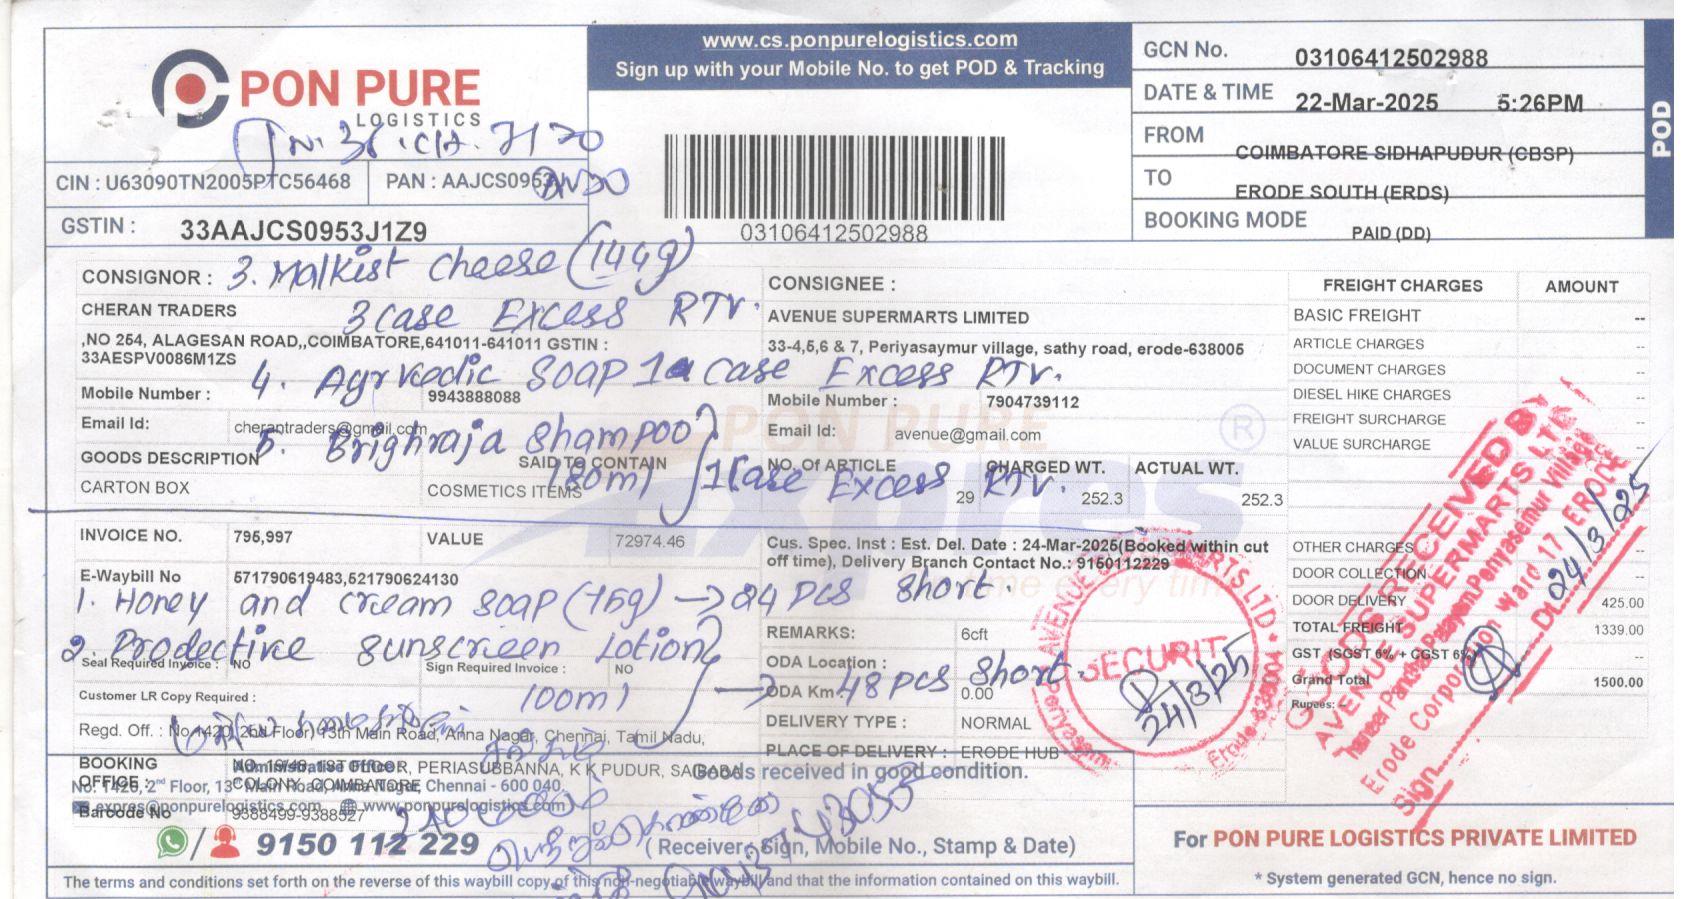 PON PURE
LOGISTICS
www.cs.ponpurelogistics.com
Sign up with your Mobile No. to get POD & Tracking
GCN No. 03106412502988
DATE & TIME 22-Mar-2025 5:26PM
FROM COIMBATORE SIDHAPUDUR (CBSP)
TO ERODE SOUTH (ERDS)
BOOKING MODE PAID (DD)
POD
CIN : U63090TN2005PTC56468
PAN : AAJCS0953
GSTIN : 33AAJCS0953J1Z9
03106412502988
3. Malkist Cheese (144g)
3 case Excess RTV.
4. Agrvedic Soap 1 case Excess RTV.
5. Brighraja Shampoo
180ml 1 case Excess RTV.
CONSIGNOR :
CHERAN TRADERS
,NO 254, ALAGESAN ROAD,,COIMBATORE,641011-641011 GSTIN :
33AESPV0086M1ZS
Mobile Number : 9943888088
Email Id: cherantraders@gmail.com
GOODS DESCRIPTION SAID TO CONTAIN
CARTON BOX COSMETICS ITEMS
CONSIGNEE :
AVENUE SUPERMARTS LIMITED
33-4,5,6 & 7, Periyasaymur village, sathy road, erode-638005
Mobile Number : 7904739112
Email Id: avenue@gmail.com
NO. Of ARTICLE CHARGED WT. ACTUAL WT.
29 252.3 252.3
PON PURE
®
FREIGHT CHARGES AMOUNT
BASIC FREIGHT --
ARTICLE CHARGES --
DOCUMENT CHARGES --
DIESEL HIKE CHARGES --
FREIGHT SURCHARGE --
VALUE SURCHARGE --
OTHER CHARGES --
DOOR COLLECTION --
DOOR DELIVERY 425.00
TOTAL FREIGHT 1339.00
GST (SGST 6% + CGST 6% --
Grand Total 1500.00
Rupees: --
INVOICE NO. 795,997 VALUE 72974.46
E-Waybill No 571790619483,521790624130
Cus. Spec. Inst : Est. Del. Date : 24-Mar-2025(Booked within cut
off time), Delivery Branch Contact No.: 9150112229
1. Honey and cream soap (75g) → 24 pcs short.
2. Prodective Sunscreen Lotion
100ml → 48 pcs short.
Seal Required Invoice : NO Sign Required Invoice : NO
Customer LR Copy Required :
REMARKS: 6cft
ODA Location :
ODA Km : 0.00
DELIVERY TYPE : NORMAL
PLACE OF DELIVERY : ERODE HUB
Regd. Off. : No.1420, 2nd Floor, 13th Main Road, Anna Nagar, Chennai, Tamil Nadu,
BOOKING OFFICE : NO. 19/48, 1ST FLOOR, PERIASUBBANNA, K K PUDUR, SAIBABA
COLONY, COIMBATORE
Administrative Office:
No. 1420, 2nd Floor, 13th Main Road, Anna Nagar, Chennai - 600 040.
expres@ponpurelogistics.com www.ponpurelogistics.com
Barcode No 9388499-9388527
9150 112 229
Goods received in good condition.
(Receiver Sign, Mobile No., Stamp & Date)
SECURIT
24/3/25
GOODS RECEIVED BY
AVENUE SUPERMARTS LTD
Erode Corporation Ward 17 ERODE
Dt. 24/3/25
Sign
For PON PURE LOGISTICS PRIVATE LIMITED
* System generated GCN, hence no sign.
The terms and conditions set forth on the reverse of this waybill copy of this non-negotiable waybill and that the information contained on this waybill.